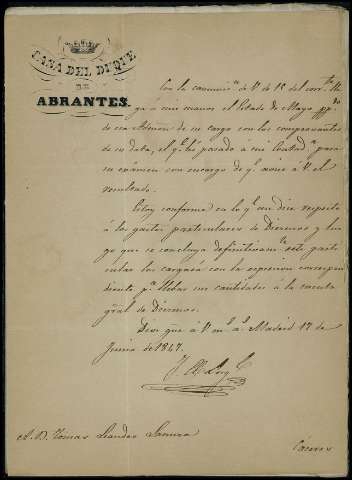 CASA DEL DUQUE
DE
ABRANTES.
Con la comunic.n de V. de 12 del corr.te lle
gó á mis manos el Estado de Mayo pp.do
de esa Admon de su cargo con los comprovantes
de su data, el q.e he pasado á mi Contad.a para
su exámen con encargo de q.e avise á V. el
resultado.
Estoy conforme en lo q.e me dice respecto
á los gastos particulares de Diezmos y lue
go que se concluya definitivam.te este parti
cular los cargará con la espresion correspon
diente p.a llebar sus cantidades á la cuenta
gral de Diezmos.
Dios gue. á V. m.s a.s Madrid 17 de
Junio de 1847.
A. D. Tomas Leandro
Cáceres